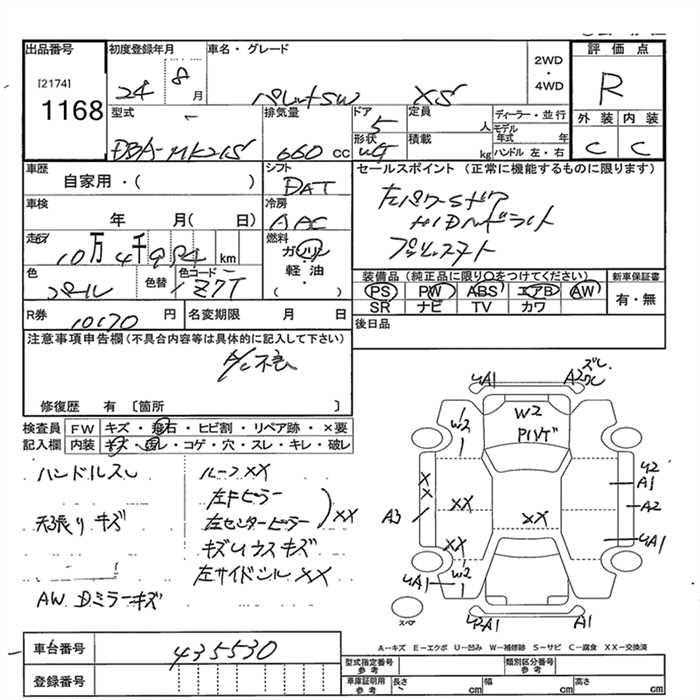 出品番号
[2174]
1168
初度登録年月
24 8月
車名・グレード
パレットSW XS
2WD
・
4WD
評価点
R
外装 内装
C C
型式
DBA-MK21S
排気量
660 cc
ドア
5
形状
定員
人
積載
kg
ディーラー・並行
モデル年式 年
ハンドル 左・右
車歴
自家用・( )
シフト
DAT
車検
年 月( 日)
冷房
AAC
走行
10万4千 km
燃料
ガソリン
軽油
( )
色
パール
色替
色コード
Z7T
R券
10170 円
名変期限 月 日
セールスポイント(正常に機能するものに限ります)
左パワーSドア
HIDヘッドライト
プッシュスタート
装備品(純正品に限り○をつけてください)
PS PW ABS エアB AW
SR ナビ TV カワ
新車保証書
有・無
後日品
注意事項申告欄(不具合内容等は具体的に記入して下さい)
A/C不良
修復歴 有 [箇所 ]
検査員 FW キズ・飛石・ヒビ割・リペア跡・×要
記入欄 内装 キズ・汚レ・コゲ・穴・スレ・キレ・破レ
ハンドルスレ
天張りキズ
AW Dミラーキズ
ルーフXX
左Fピラー
左センターピラー
XX
キズU ウスキズ
左サイドシルXX
UA1
A2
ズレ
ワレ
W2
W2
PIVT
X
X
A3
XX
XX
XX
U2
A1
A2
UA1
UA1
W2
A1
スペア
A-キズ E-エクボ U-凹み W-補修跡 S-サビ C-腐食 XX-交換済
車台番号
435530
登録番号
型式指定番号
参考
類別区分番号
参考
車庫証明用
参考
長さ cm
幅 cm
高さ cm